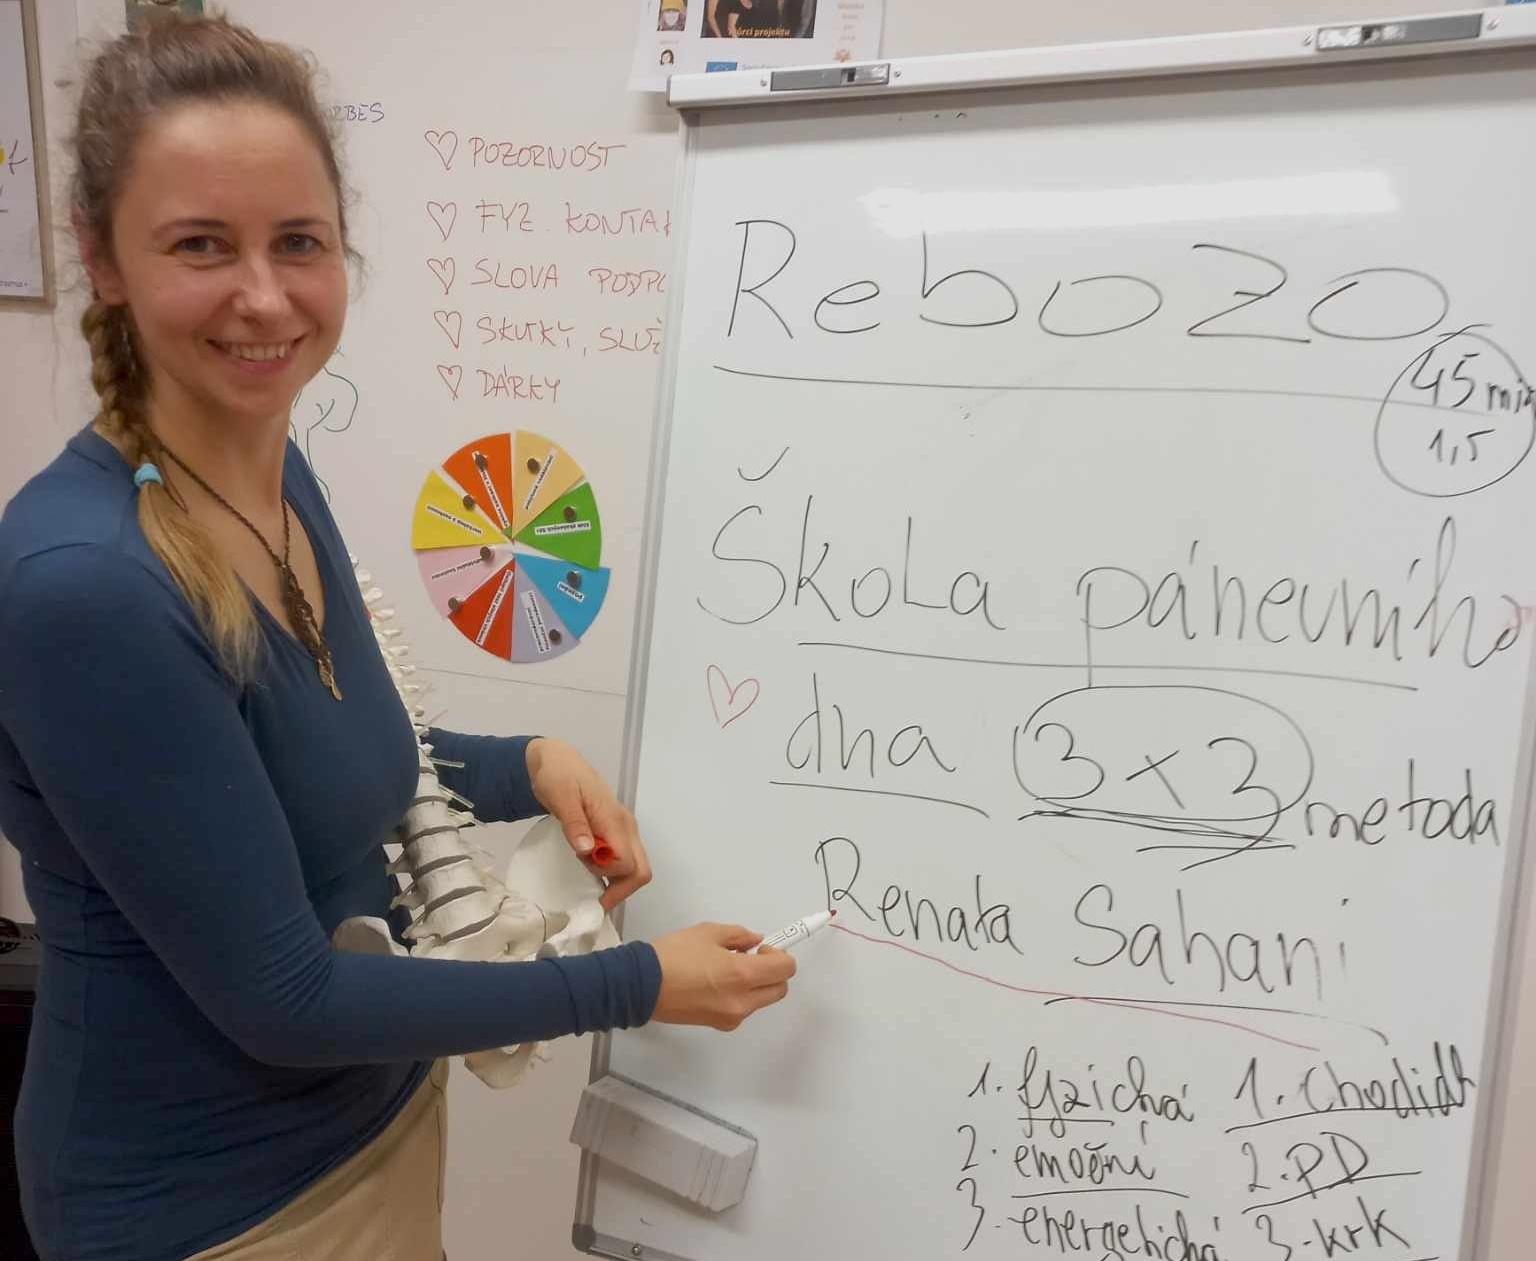 POZORNOST
FYZ. KONTAK
SLOVA PODPO
SKUTKY, SLUŽ
DÁRKY
Rebozo
45 min
1,5
Škola pánevního
dna 3x3 metoda
Renata Sahani
1. fyzická 1. Chodidl
2. emoční 2. PD
3. energetická 3. krk